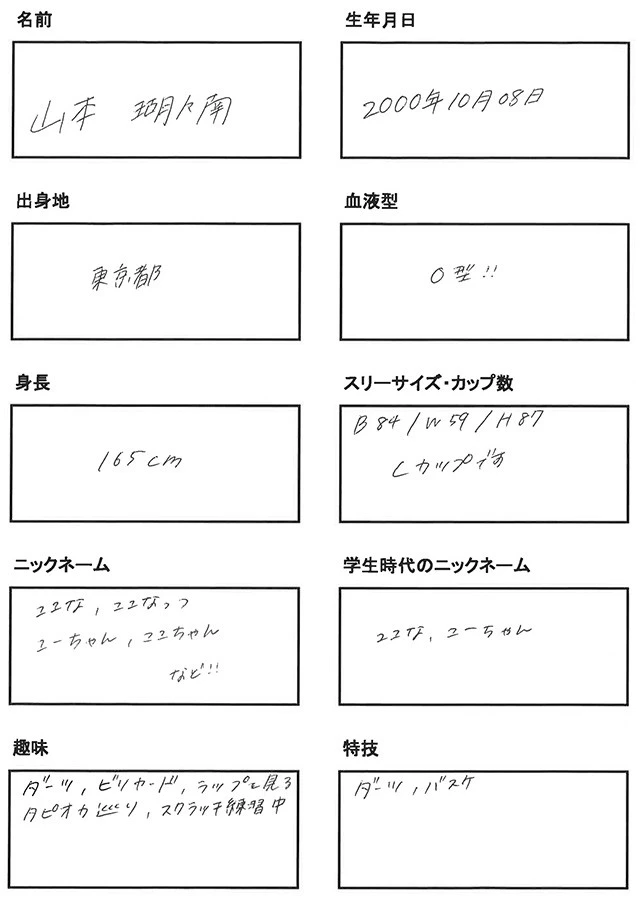 名前
山本 瑚々南
生年月日
2000年10月08日
出身地
東京都
血液型
O型!!
身長
165cm
スリーサイズ・カップ数
B84/W59/H87
Cカップです
ニックネーム
ココな,ココなっつ
コーちゃん,ココちゃん
など!!
学生時代のニックネーム
ココな,コーちゃん
趣味
ダーツ,ビリヤード,ラップを見る
タピオカ巡り,スクラッチ練習中
特技
ダーツ,バスケ